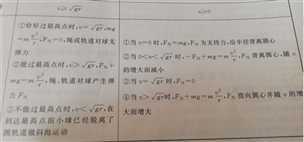 v≥√gr
v≥0
①恰好过最高点时，v=√gr，mg
=mv²/r，F_N=0，绳或轨道对球无
弹力
②能过最高点时，v≥√gr，F_N+
mg=mv²/r，绳、轨道对球产生弹
力F_N
③不能过最高点时，v<√gr，在
到达最高点前小球已经脱离了
圆轨道做斜抛运动
①当v=0时，F_N=mg，F_N为支持力，沿半径背离圆心
②当0<v<√gr时，-F_N+mg=mv²/r，F_N背离圆心，随v
的增大而减小
③当v=√gr时，F_N=0
④当v>√gr时，F_N+mg=mv²/r，F_N指向圆心并随v的增
大而增大